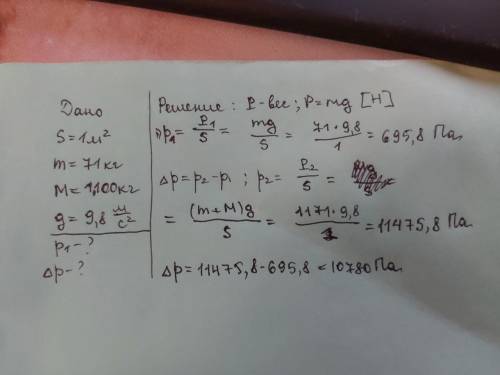 Дано
S=1м²
m=71кг
M=1100кг
g=9,8 м/с²
p₁-?
Δp-?
Решение: P-вес; P=mg [H]
1) p₁= P₁/S = mg/S = 71·9,8/1 = 695,8 Па
Δp=p₂-p₁; p₂= P₂/S =
= (m+M)g/S = 1171·9,8/1 = 11475,8 Па
Δp=11475,8-695,8=10780 Па